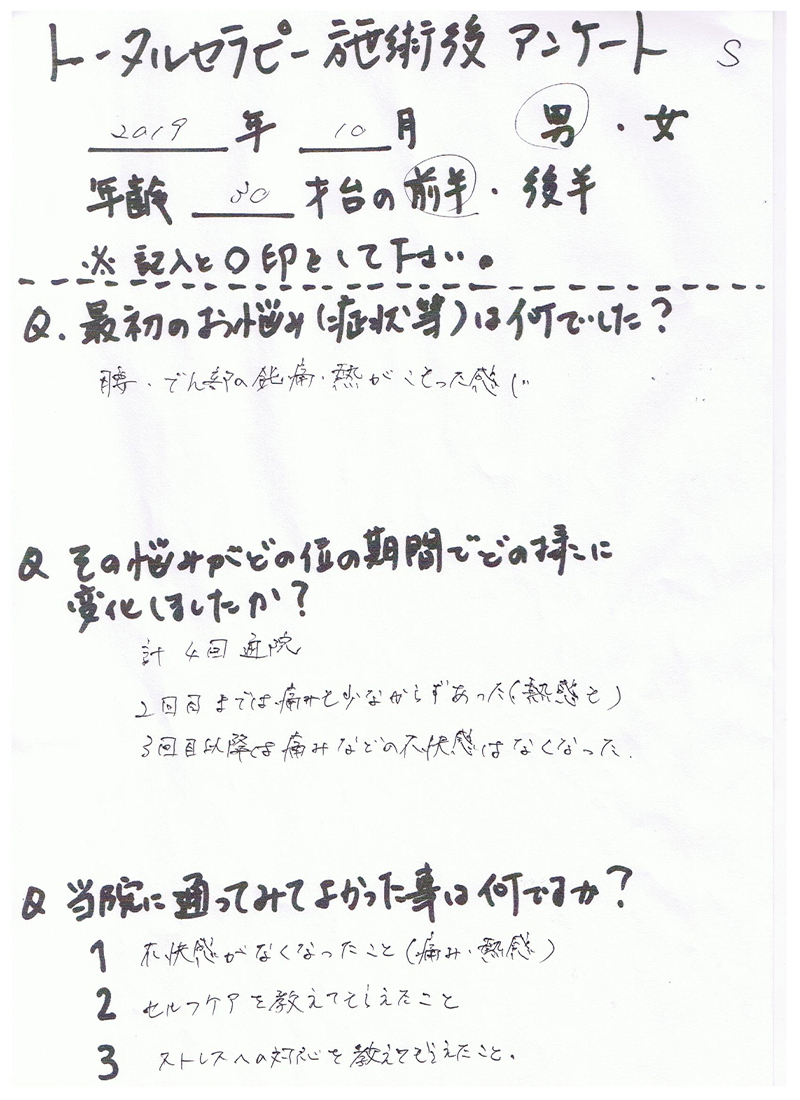 トータルセラピー施術後 アンケート S
2019 年 10 月 男・女
年齢 30 才台の前半・後半
※ 記入と〇印をして下さい。
Q. 最初のお悩み(症状等)は何でした?
腰・でん部の鈍痛・熱がこもった感じ
Q その悩みがどの位の期間でどの様に
変化しましたか?
計 4回 通院
2回目までは痛みも少なからずあった(熱感も)
3回目以降は痛みなどの不快感はなくなった.
Q 当院に通ってみてよかった事は何ですか?
1 不快感がなくなったこと(痛み・熱感)
2 セルフケアを教えてもらえたこと
3 ストレスへの対応を教えてもらえたこと.